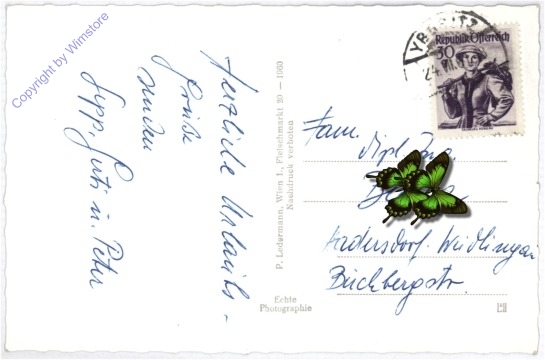 Copyright by Wimstore
Herzliche Urlaubs-
grüße
senden
Sepp, Gerti u. Peter
P. Ledermann, Wien 1., Fleischmarkt 20 — 1960
Nachdruck verboten
Echte
Photographie
YBBSITZ
Republik Österreich
30
Fam.
Dipl. Ing.
Hadersdorf-Weidlingau
Büchbergstr.